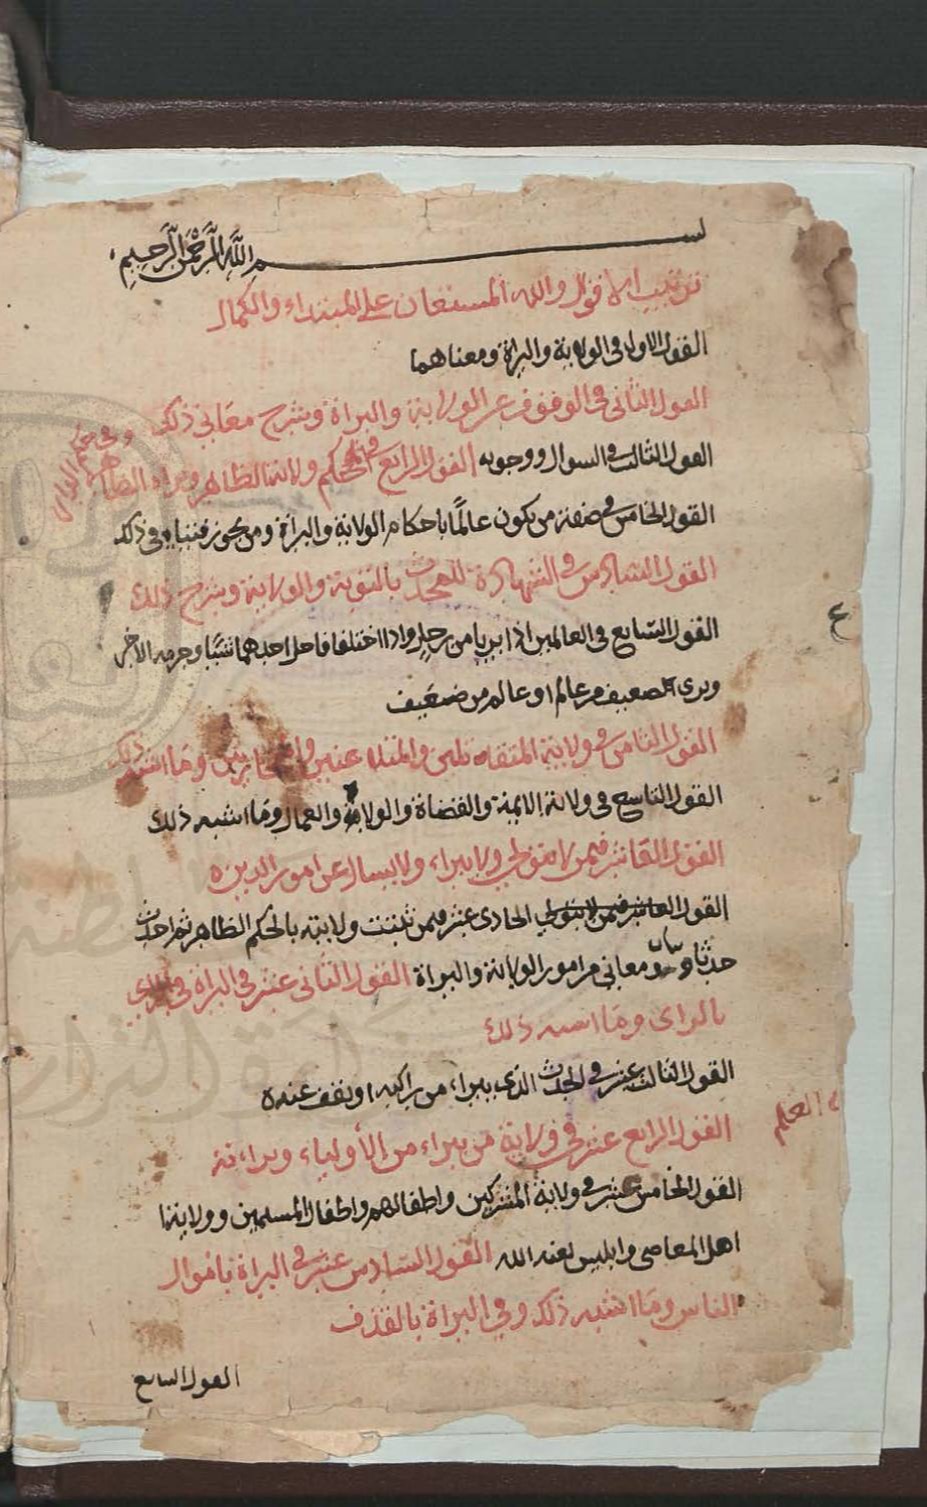 بسم الله الرحمن الرحيم
ترتيب الاقوال والله المستعان على المبتداء والكمال
القول الاول في الولاية والبراة ومعناهما
القول الثاني في الوقوف عن الولاية والبراة وشرح معاني ذلك
القول الثالث في السوال ووجوبه القول الرابع في الحكم ولاية الظاهر وبراة الظاهر وفي حكم
القول الخامس في صفة من يكون عالمًا باحكام الولاية والبراة ومن يجوز فتياه في ذلك
القول السادس في الشهادة للمحدث بالتوبة والولاية وشرح ذلك
القول السابع في العالمين اذا بريا من رجل واذا اختلفا فاحل احدهما شيًا وحرمه الآخر
وبرى ضعيف من عالم او عالم من ضعيف
القول الثامن في ولاية وما اشبه ذلك
القول التاسع في ولاية الايمة والقضاة والولاة والعمال وما اشبه ذلك
القول العاشر فيمن لا يتولى ولا يبراء ولا يسال عن امور الدين
القول العاشر فيمن لا يتولى الحادي عشر فيمن ثبتت ولايته بالحكم الظاهر ثم احدث
حدثا معاني من امور الولاية والبراة القول الثاني عشر في البراة في
بالراى وما اشبه ذلك
القول الثالث عشر في الحدث الذي يبراء من راكبه او نقف عنه
القول الرابع عشر في ولاية من يبراء من الأولياء وبراءته
العلم
القول الخامس عشر في ولاية المشركين واطفالهم واطفال المسلمين وولاية
اهل المعاصي وابليس لعنه الله القول السادس عشر في البراة باقوال
الناس وما اشبه ذلك وفي البراة بالقذف
القول السابع